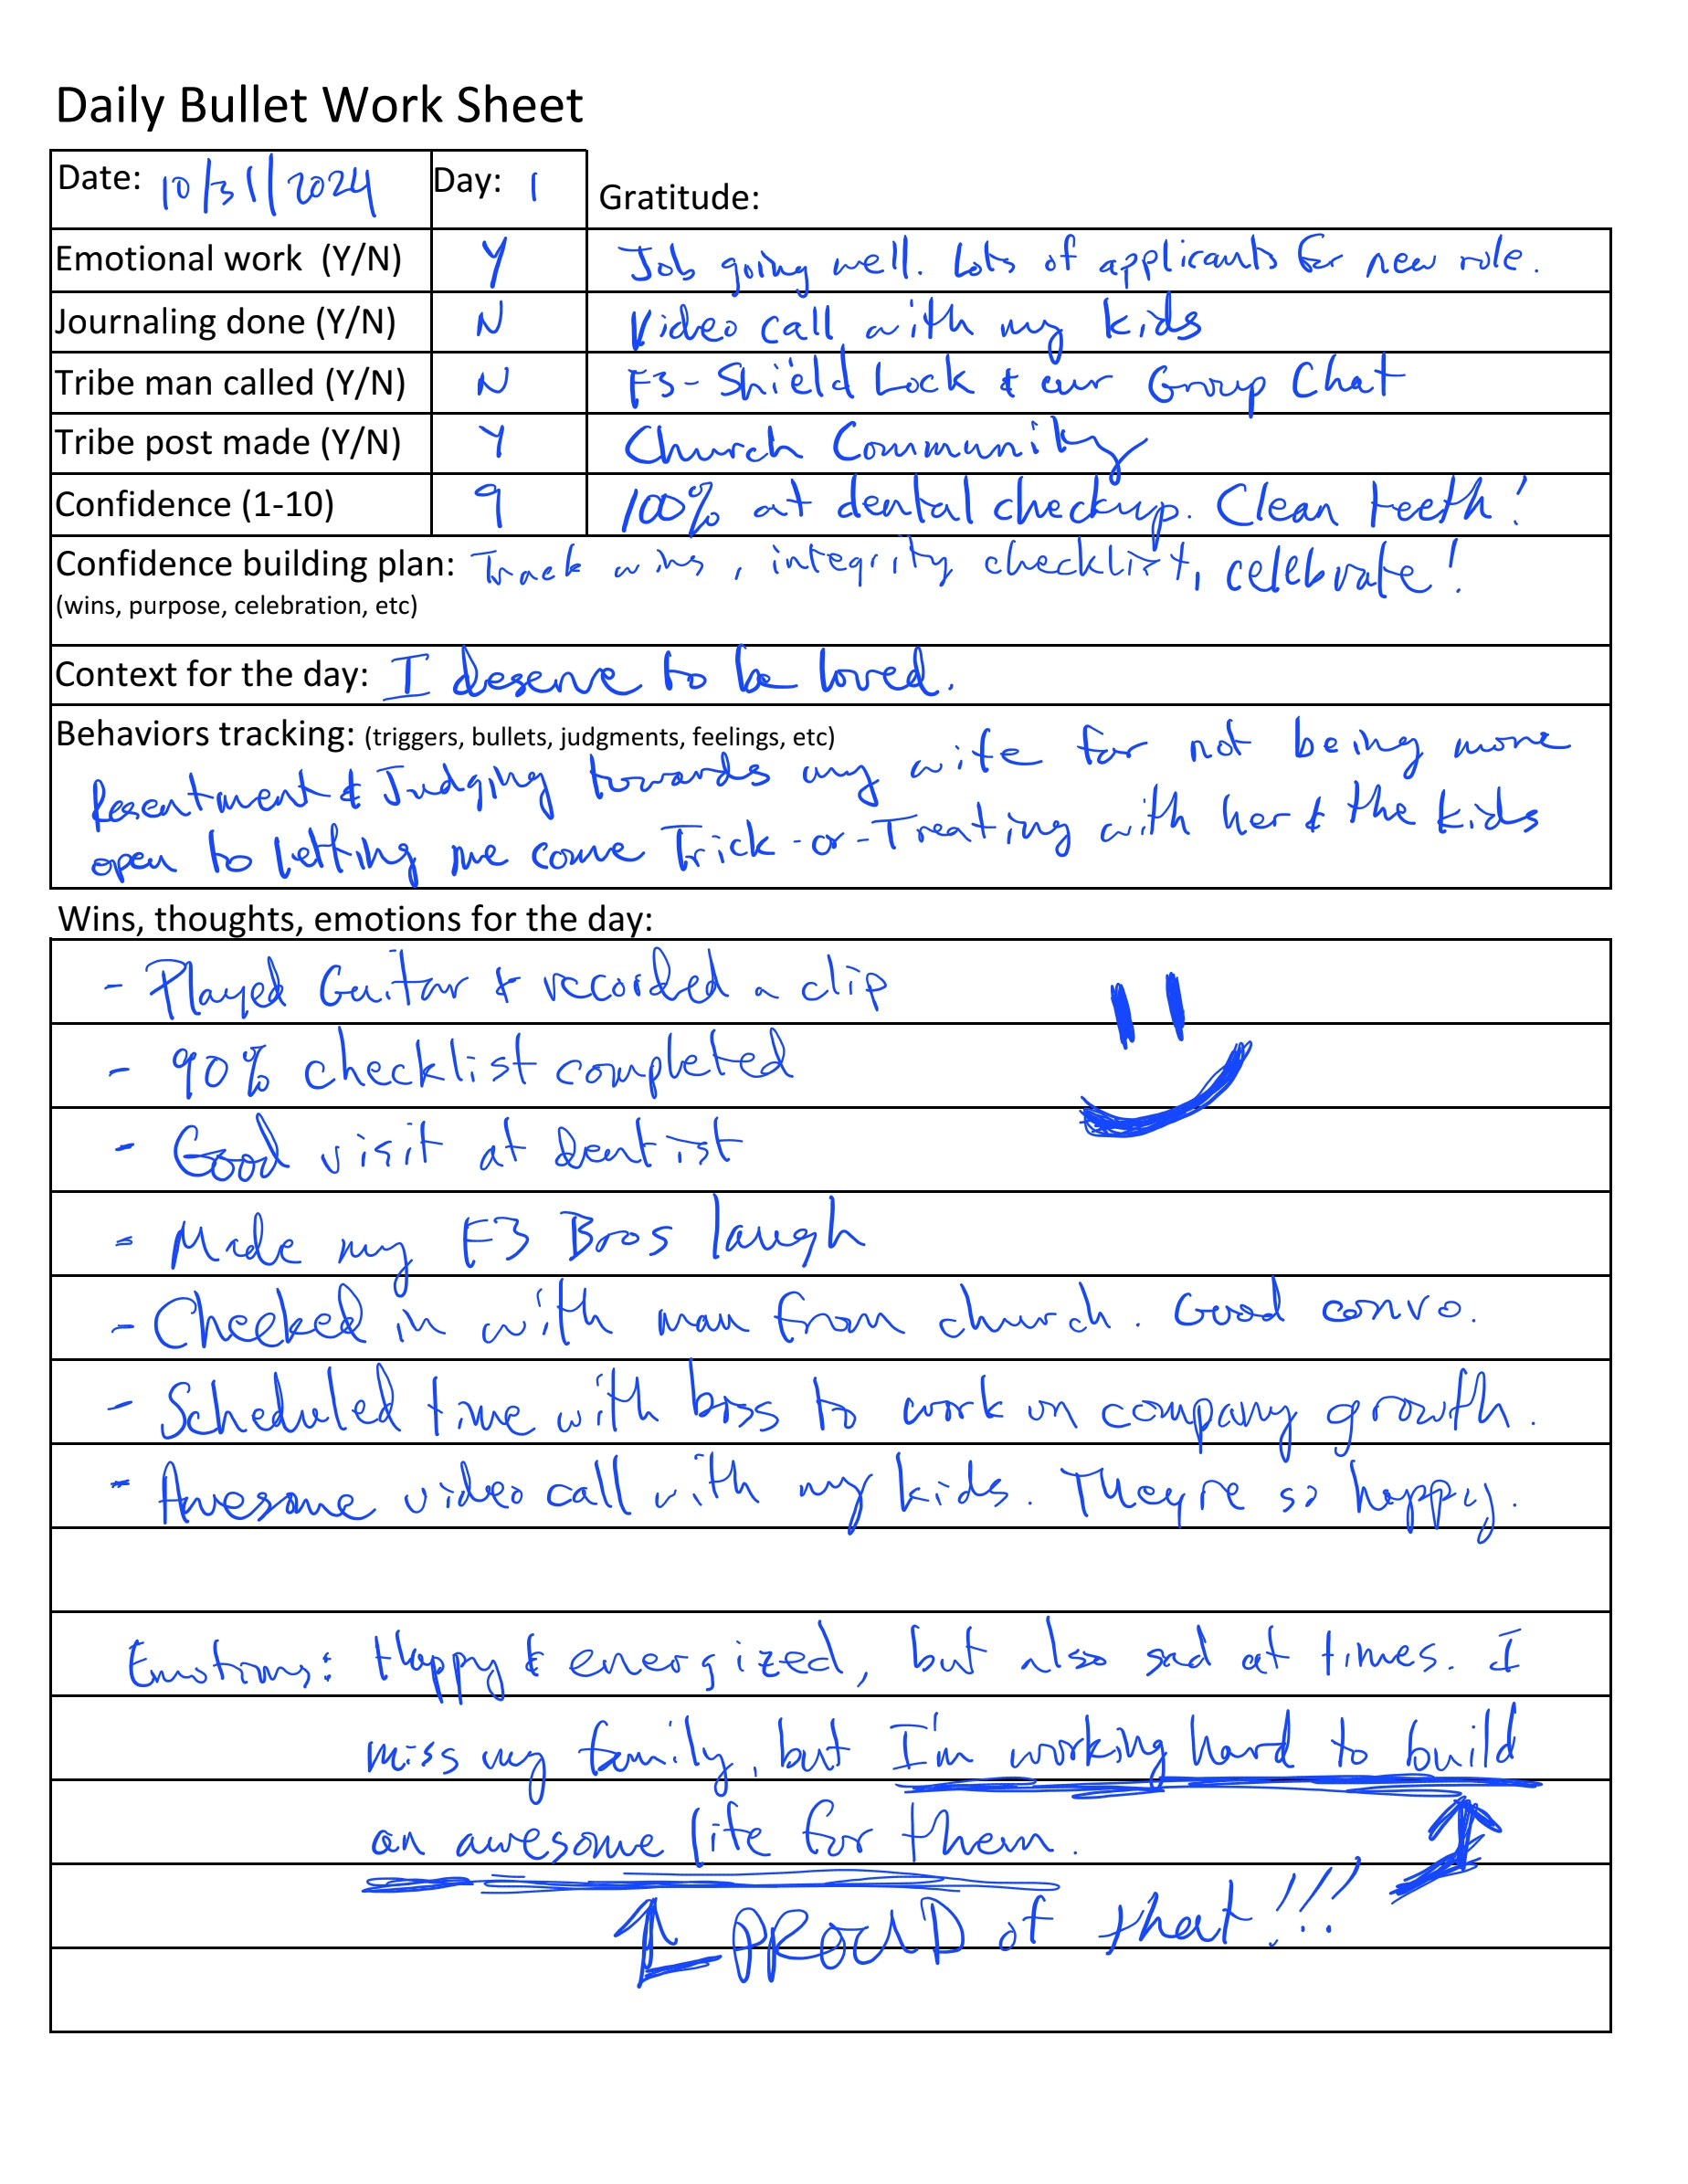 Daily Bullet Work Sheet
Date: 10/31/2024 Day: 1 Gratitude:
Emotional work (Y/N) Y Job going well. Lots of applicants for new role.
Journaling done (Y/N) N Video call with my kids
Tribe man called (Y/N) N F3 - Shield Lock & our Group Chat
Tribe post made (Y/N) Y Church Community
Confidence (1-10) 9 100% at dental checkup. Clean teeth!
Confidence building plan: Track wins, integrity checklist, celebrate!
(wins, purpose, celebration, etc)
Context for the day: I deserve to be loved.
Behaviors tracking: (triggers, bullets, judgments, feelings, etc)
Resentment & Judging towards my wife for not being more
open to letting me come Trick-or-Treating with her & the kids
Wins, thoughts, emotions for the day:
- Played Guitar & recorded a clip
- 90% checklist completed
- Good visit at dentist
- Made my F3 Bros laugh
- Checked in with man from church. Good convo.
- Scheduled time with boss to work on company growth.
- Awesome video call with my kids. They're so happy.
Emotions: Happy & energized, but also sad at times. I
miss my family, but I'm working hard to build
an awesome life for them.
PROUD of that!!!